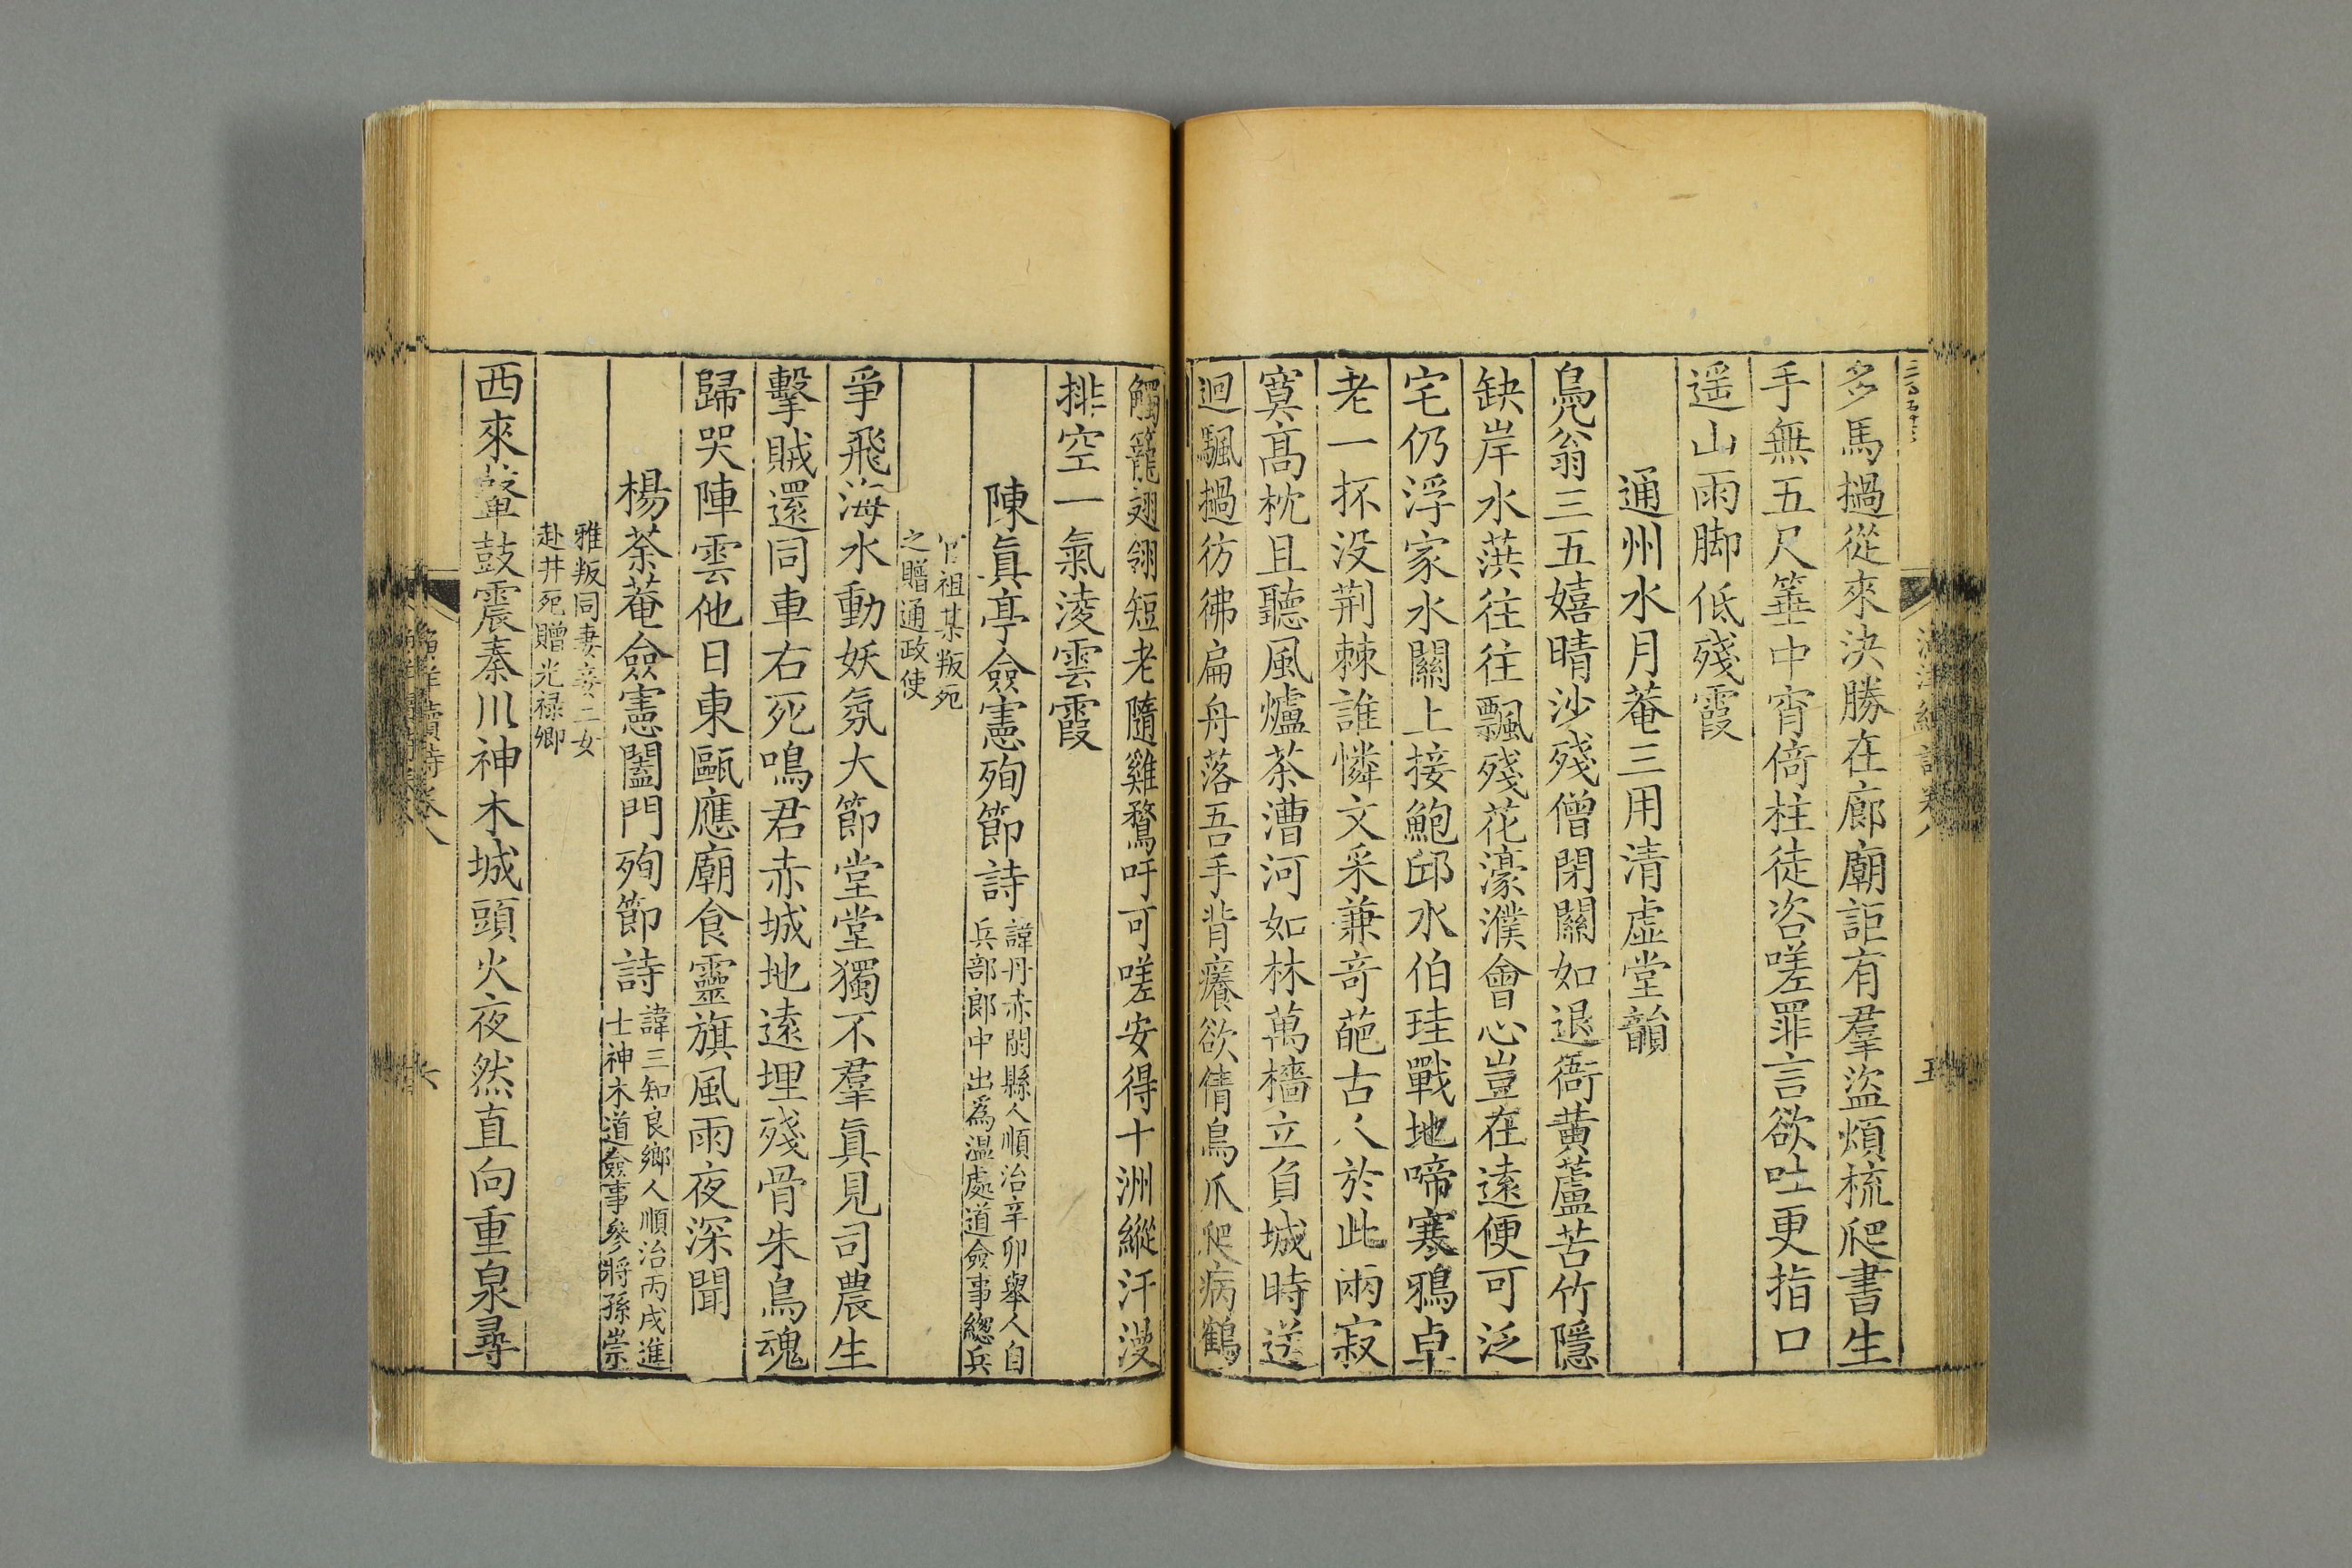 多馬撾從來決勝在廊廟詎有羣盜煩梳爬書生
手無五尺箠中宵倚柱徒咨嗟罪言欲吐更指口
遥山雨脚低殘霞
通州水月菴三用清虛堂韻
鳧翁三五嬉晴沙殘僧閉關如退衙黄蘆苦竹隱
缺岸水葓往往飄殘花濠濮會心豈在遠便可泛
宅仍浮家水關上接鮑邱水伯珪戰地啼寒鴉卓
老一抔没荆棘誰憐文采兼奇葩古人於此兩寂
寞高枕且聽風爐茶漕河如林萬檣立負城時送
迴颿撾彷彿扁舟落吾手背癢欲倩鳥爪爬病鶴
觸籠翅翎短老隨雞鶩吁可嗟安得十洲縱汗漫
排空一氣淩雲霞
陳眞亭僉憲殉節詩
諱丹赤閩縣人順治辛卯舉人自
兵部郎中出爲温處道僉事緫兵
官祖某叛死
之贈通政使
爭飛海水動妖氛大節堂堂獨不羣眞見司農生
擊賊還同車右死鳴君赤城地遠埋殘骨朱鳥魂
歸哭陣雲他日東甌應廟食靈旗風雨夜深聞
楊荼菴僉憲闔門殉節詩
諱三知良鄉人順治丙戌進
士神木道僉事參將孫崇
雅叛同妻妾二女
赴井死贈光禄卿
西來鼙鼓震秦川神木城頭火夜然直向重泉尋